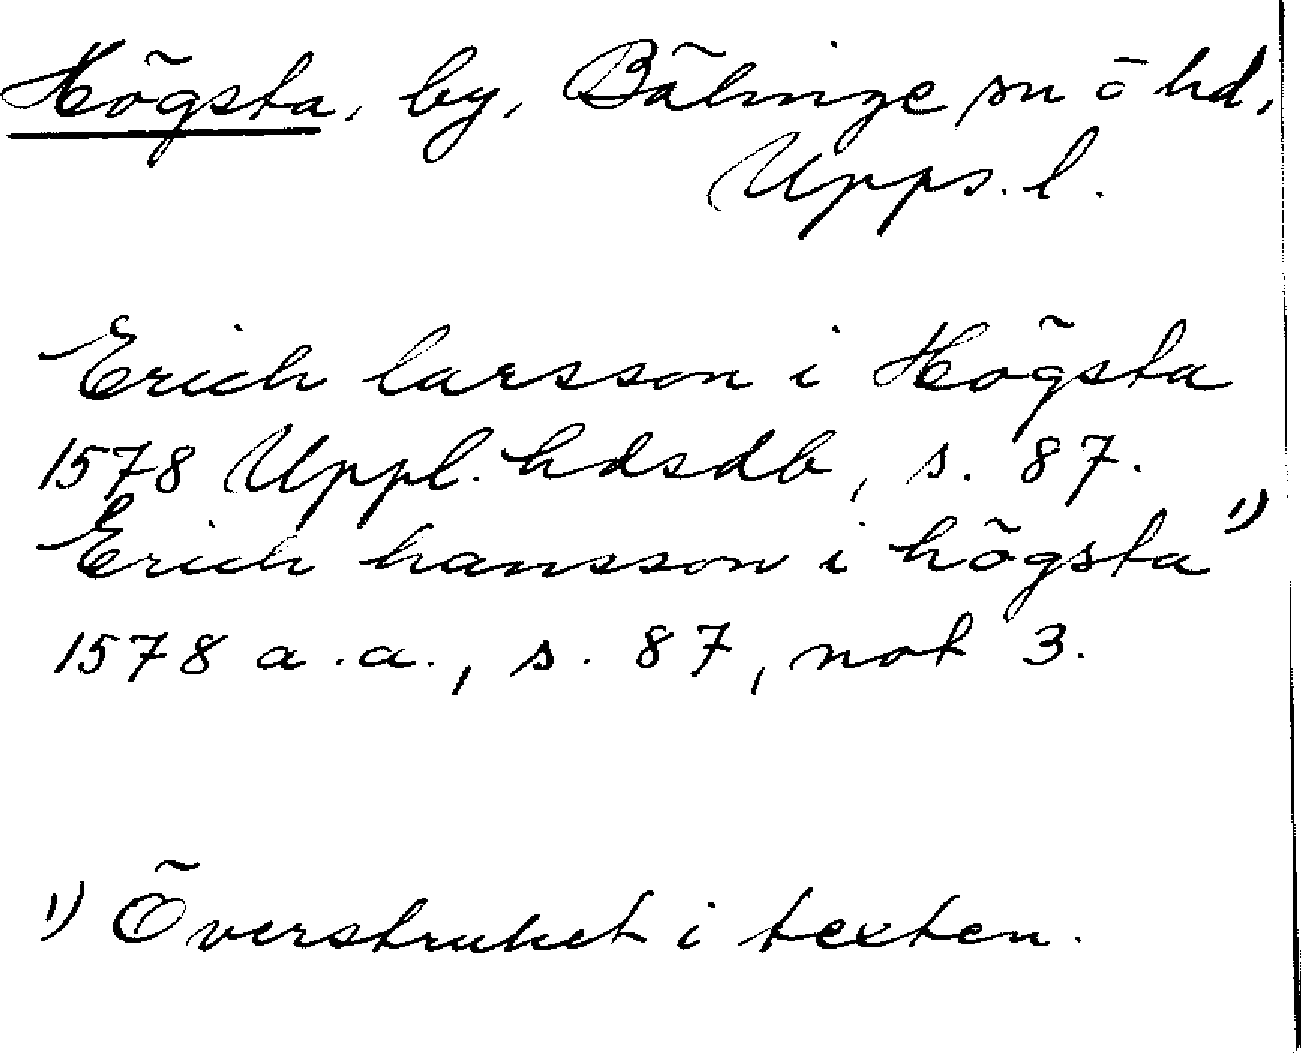 Högsta, by, Bälinge sn o hd,
Upps. l.
Erich larsson i Högsta
1578 Uppl. hdsdb, s. 87.
Erich hansson i högsta 1)
1578 a.a., s. 87, not 3.
1) Överstruket i texten.